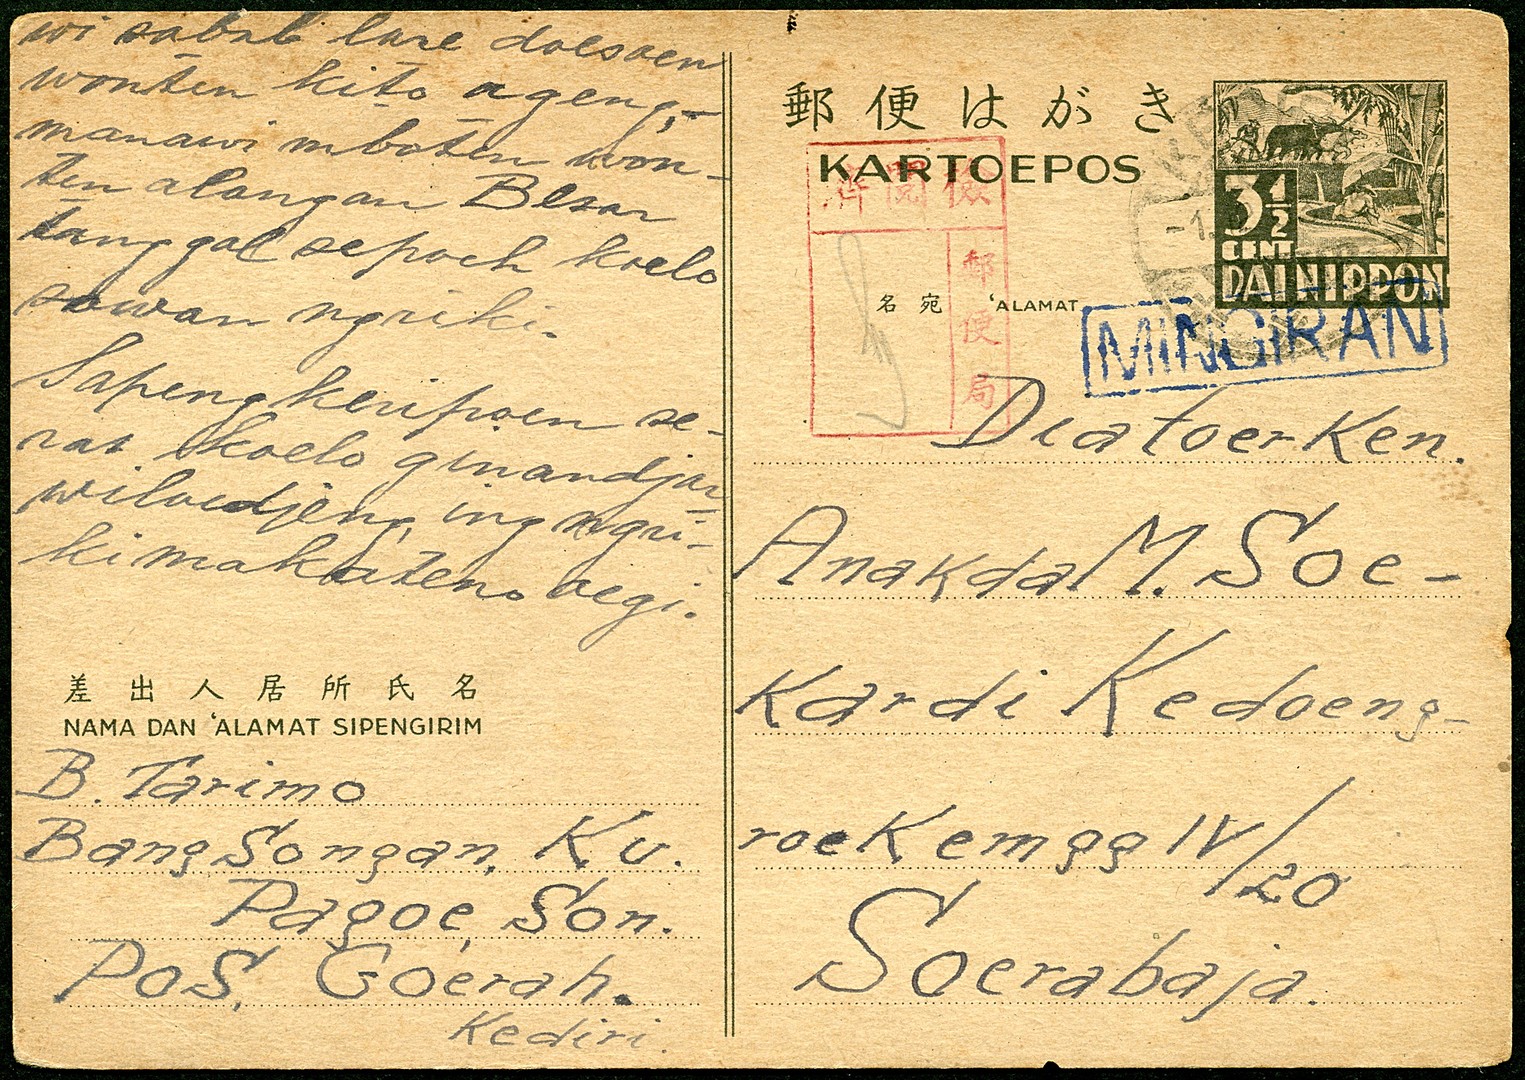 wi sabab lare doesoen
wonten kito ageng,
manawi mboten won-
ten alangan Besar
tanggal sepoeh koelo
sowan ngriki.
Sapengkeripoen se-
rat koelo ginandjar
wiloedjeng, ing ngri-
ki makaten oegi.
差出人居所氏名
NAMA DAN ‘ALAMAT SIPENGIRIM
B. Tarimo
BangSongan, Kv.
Pagoe, Son.
Pos, Goerah.
Kediri.
郵便はがき
KARTOEPOS
3 1/2
CENT
DAI NIPPON
検閲済
郵便局
名宛 ‘ALAMAT
MINGIRAN
Diatoerken.
Anakda M. Soe-
Kardi Kedoeng-
roekem gg IV/20
Soerabaja.